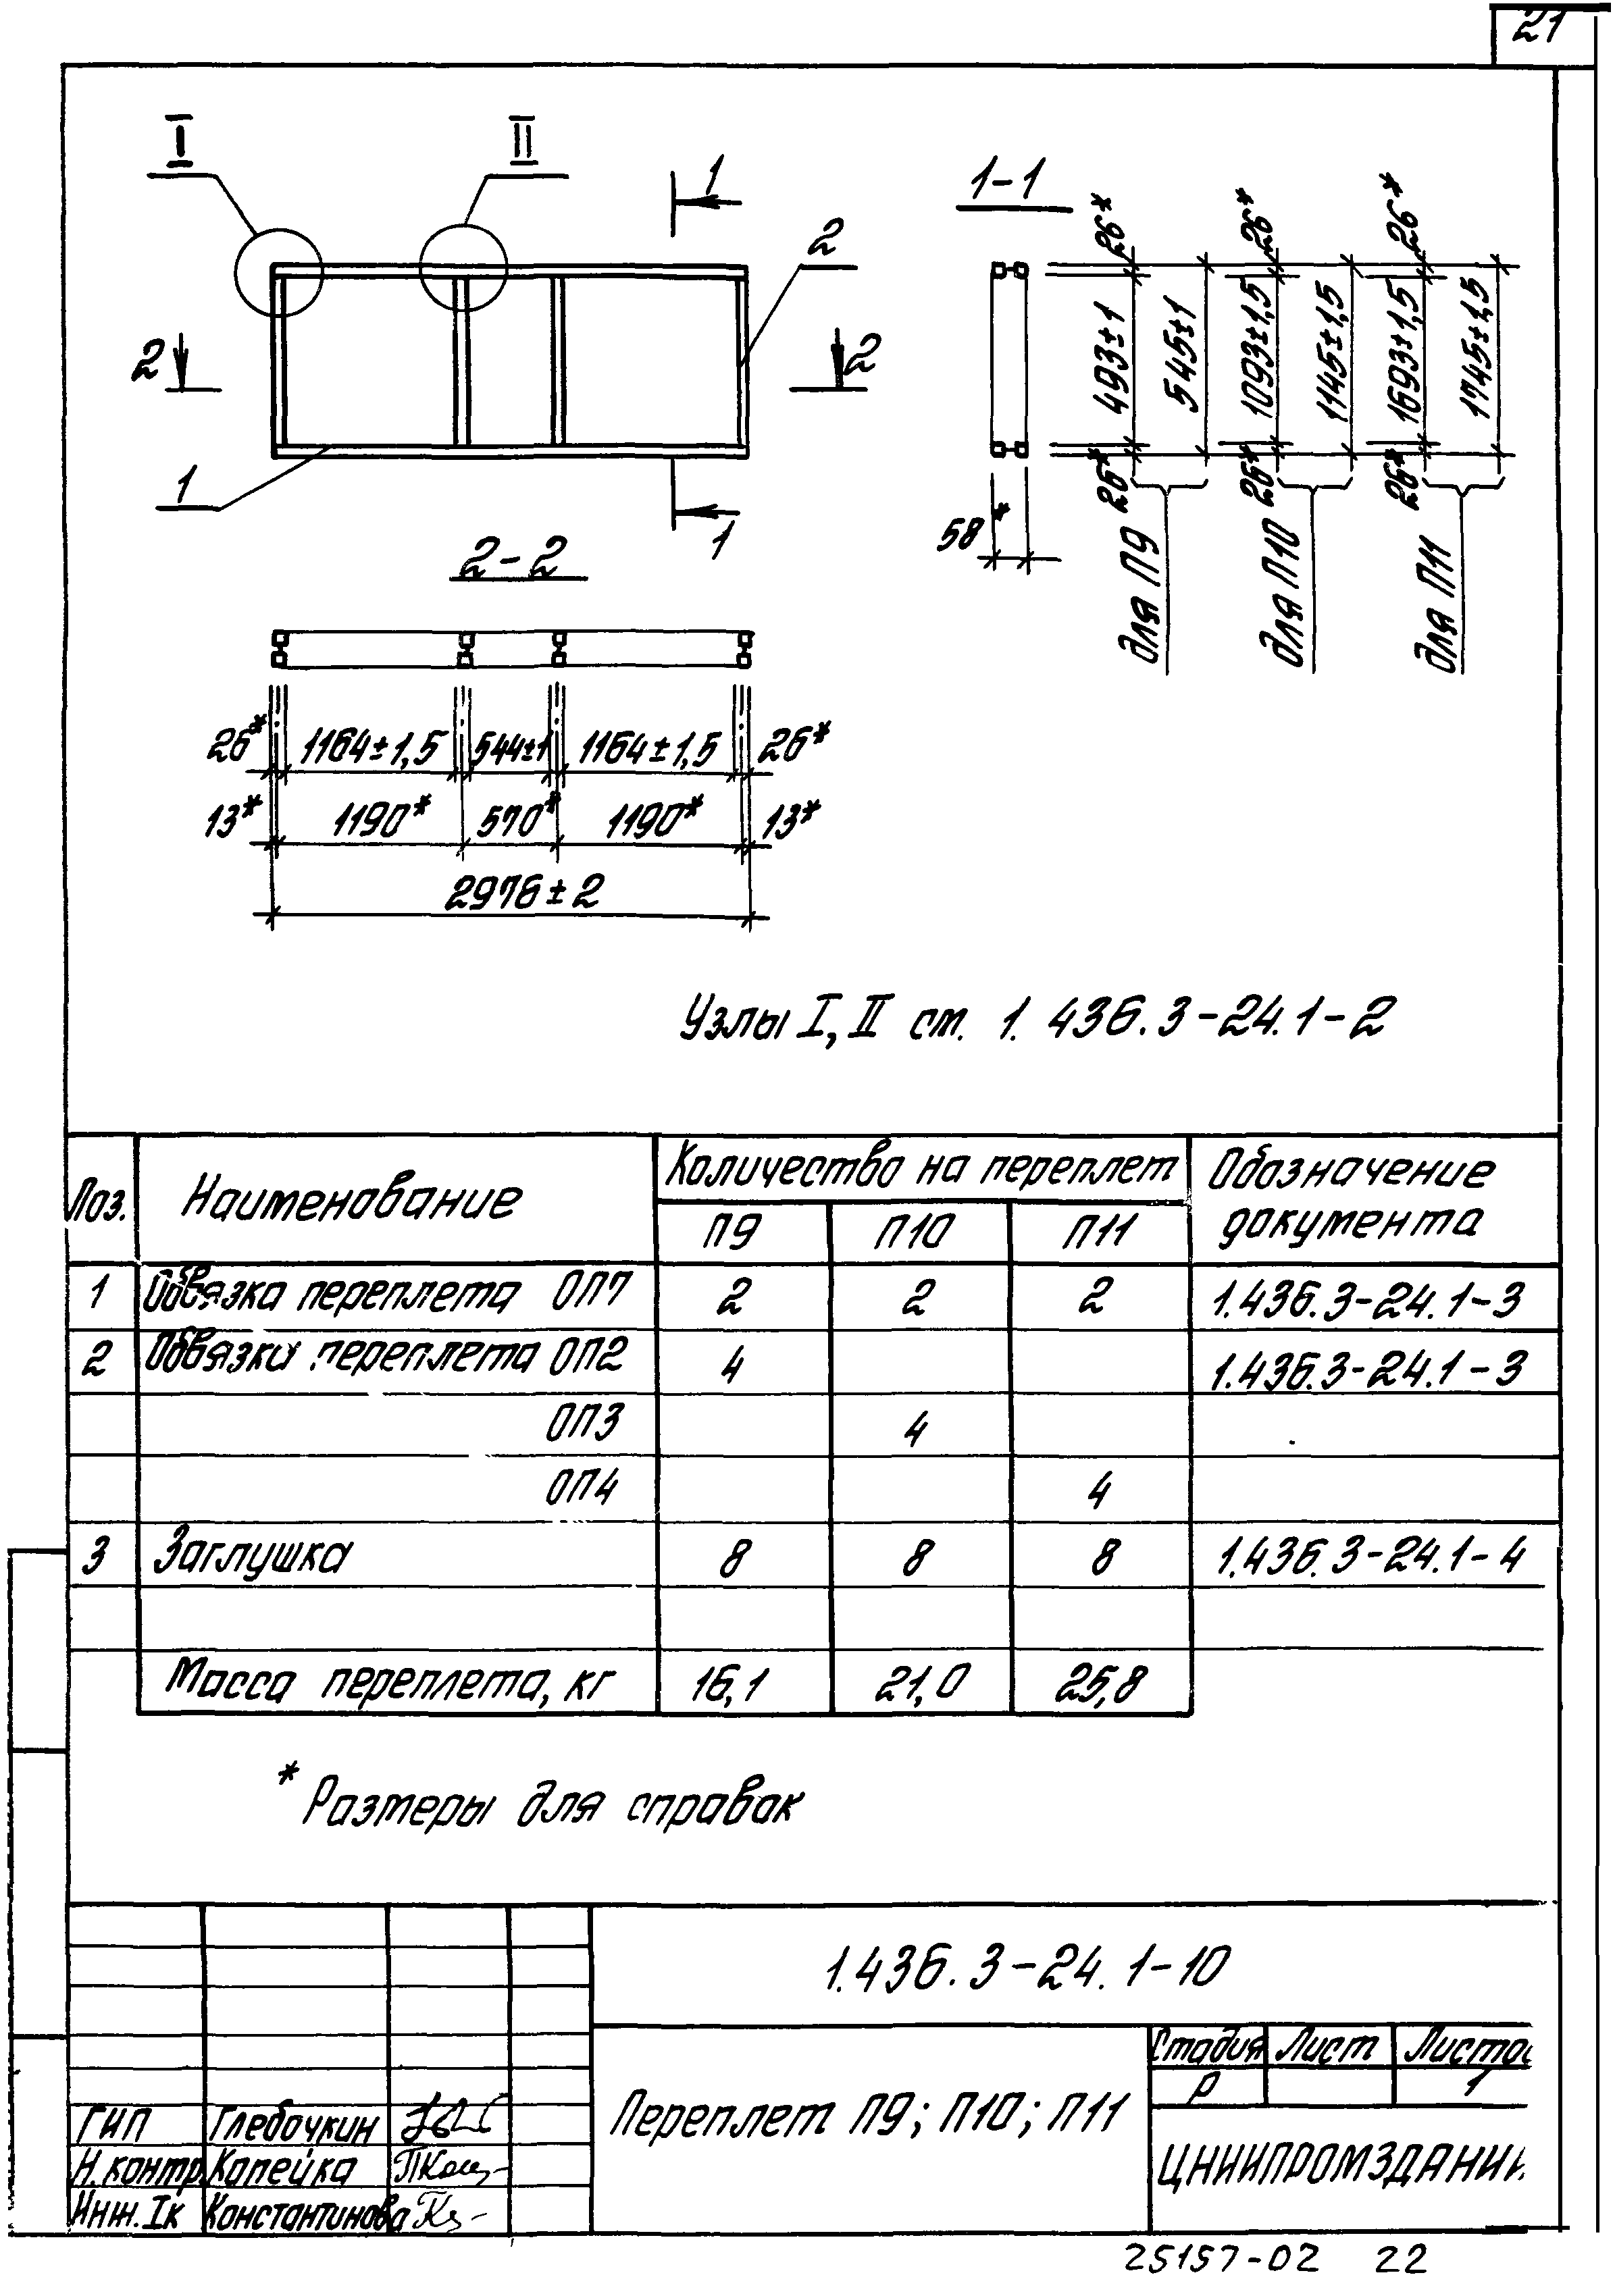 21
I
II
1
1-1
2
2
2
1
1
26*
26*
26*
493±1
545±1
1093±1,5
1145±1,5
1693±1,5
1745±1,5
26*
26*
26*
58*
для П9
для П10
для П11
2-2
26* 1164±1,5 544±1 1164±1,5 26*
13* 1190* 570* 1190* 13*
2976±2
Узлы I, II см. 1.436.3-24.1-2
Поз. Наименование Количество на переплет Обозначение документа
П9 П10 П11
1 Обвязка переплета ОП7 2 2 2 1.436.3-24.1-3
2 Обвязки переплета ОП2 4 1.436.3-24.1-3
ОП3 4
ОП4 4
3 Заглушка 8 8 8 1.436.3-24.1-4
Масса переплета, кг 16,1 21,0 25,8
* Размеры для справок
1.436.3-24.1-10
Переплет П9; П10; П11
Стадия Лист Листов
Р 1
ЦНИИПРОМЗДАНИЙ
ГИП Глебочкин
Н.контр. Копейка
Инж. Iк Константинова
25157-02 22